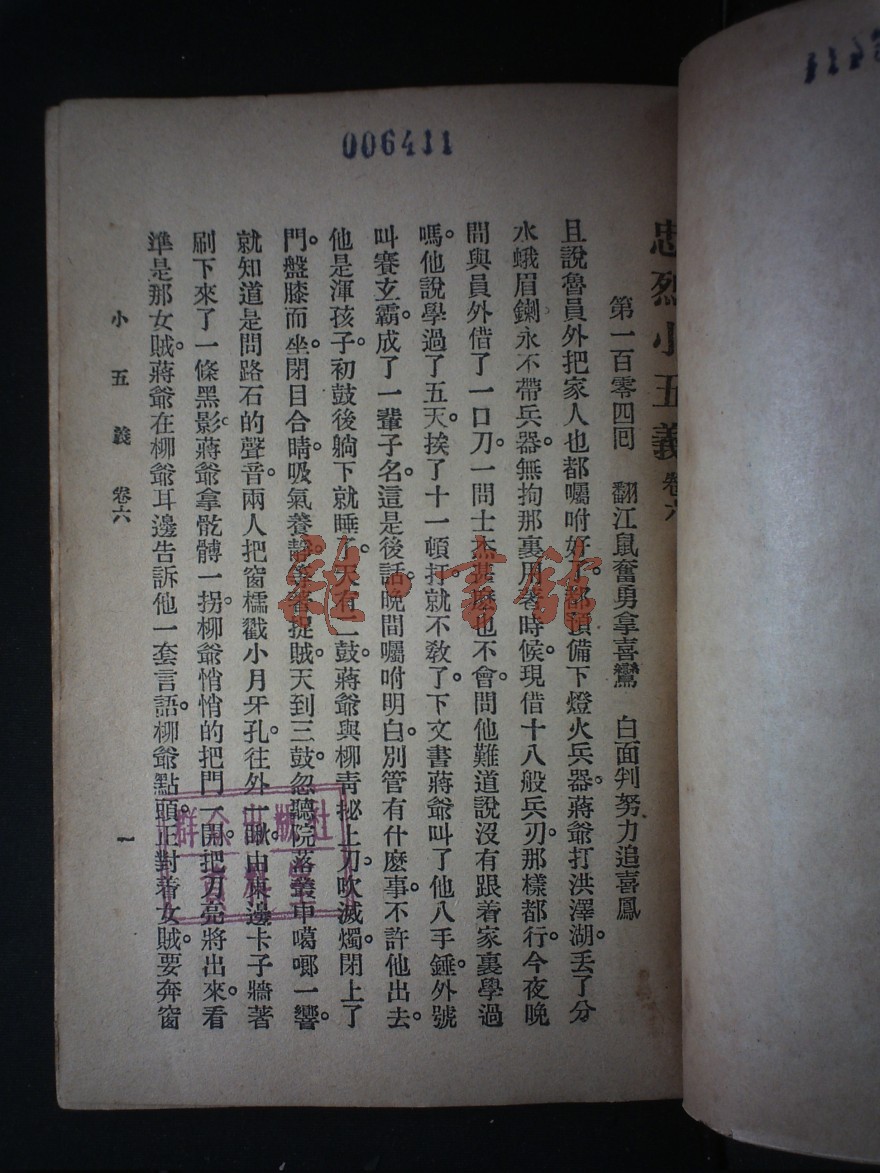 006411
忠烈小五義 卷六
第一百零四回 翻江鼠奮勇拿喜鸞 白面判努力追喜鳳
且說魯員外把家人也都囑咐好了。都預備下燈火兵器。蔣爺打洪澤湖。丟了分
水蛾眉鍘永不帶兵器。無拘那裏用著時候。現借十八般兵刃。那樣都行。今夜晚
間與員外借了一口刀。一問士杰甚麽也不會。問他難道說沒有跟着家裏學過
嗎。他說學過了五天。挨了十一頓打。就不敎了。下文書蔣爺叫了他八手錘。外號
叫賽玄霸。成了一輩子名。這是後話。晚間囑咐明白。別管有什麽事。不許他出去。
他是渾孩子。初鼓後躺下就睡了。天有二鼓。蔣爺與柳靑掖上刀。吹滅燭。閉上了
門。盤膝而坐。閉目合睛。吸氣養靜。等著捉賊。天到三鼓。忽聽院落叢中噶啷一響。
就知道是問路石的聲音。兩人把窗櫺戳小月牙孔。往外一瞅。由東邊卡子牆著
刷下來了一條黑影。蔣爺拿骹髆一拐。柳爺悄悄的把門一開。把刀亮將出來。看
準是那女賊。蔣爺在柳爺耳邊告訴他一套言語。柳爺點頭。正對着女賊。要奔窗
小五義 卷六
一
雅·書館
群众出版社